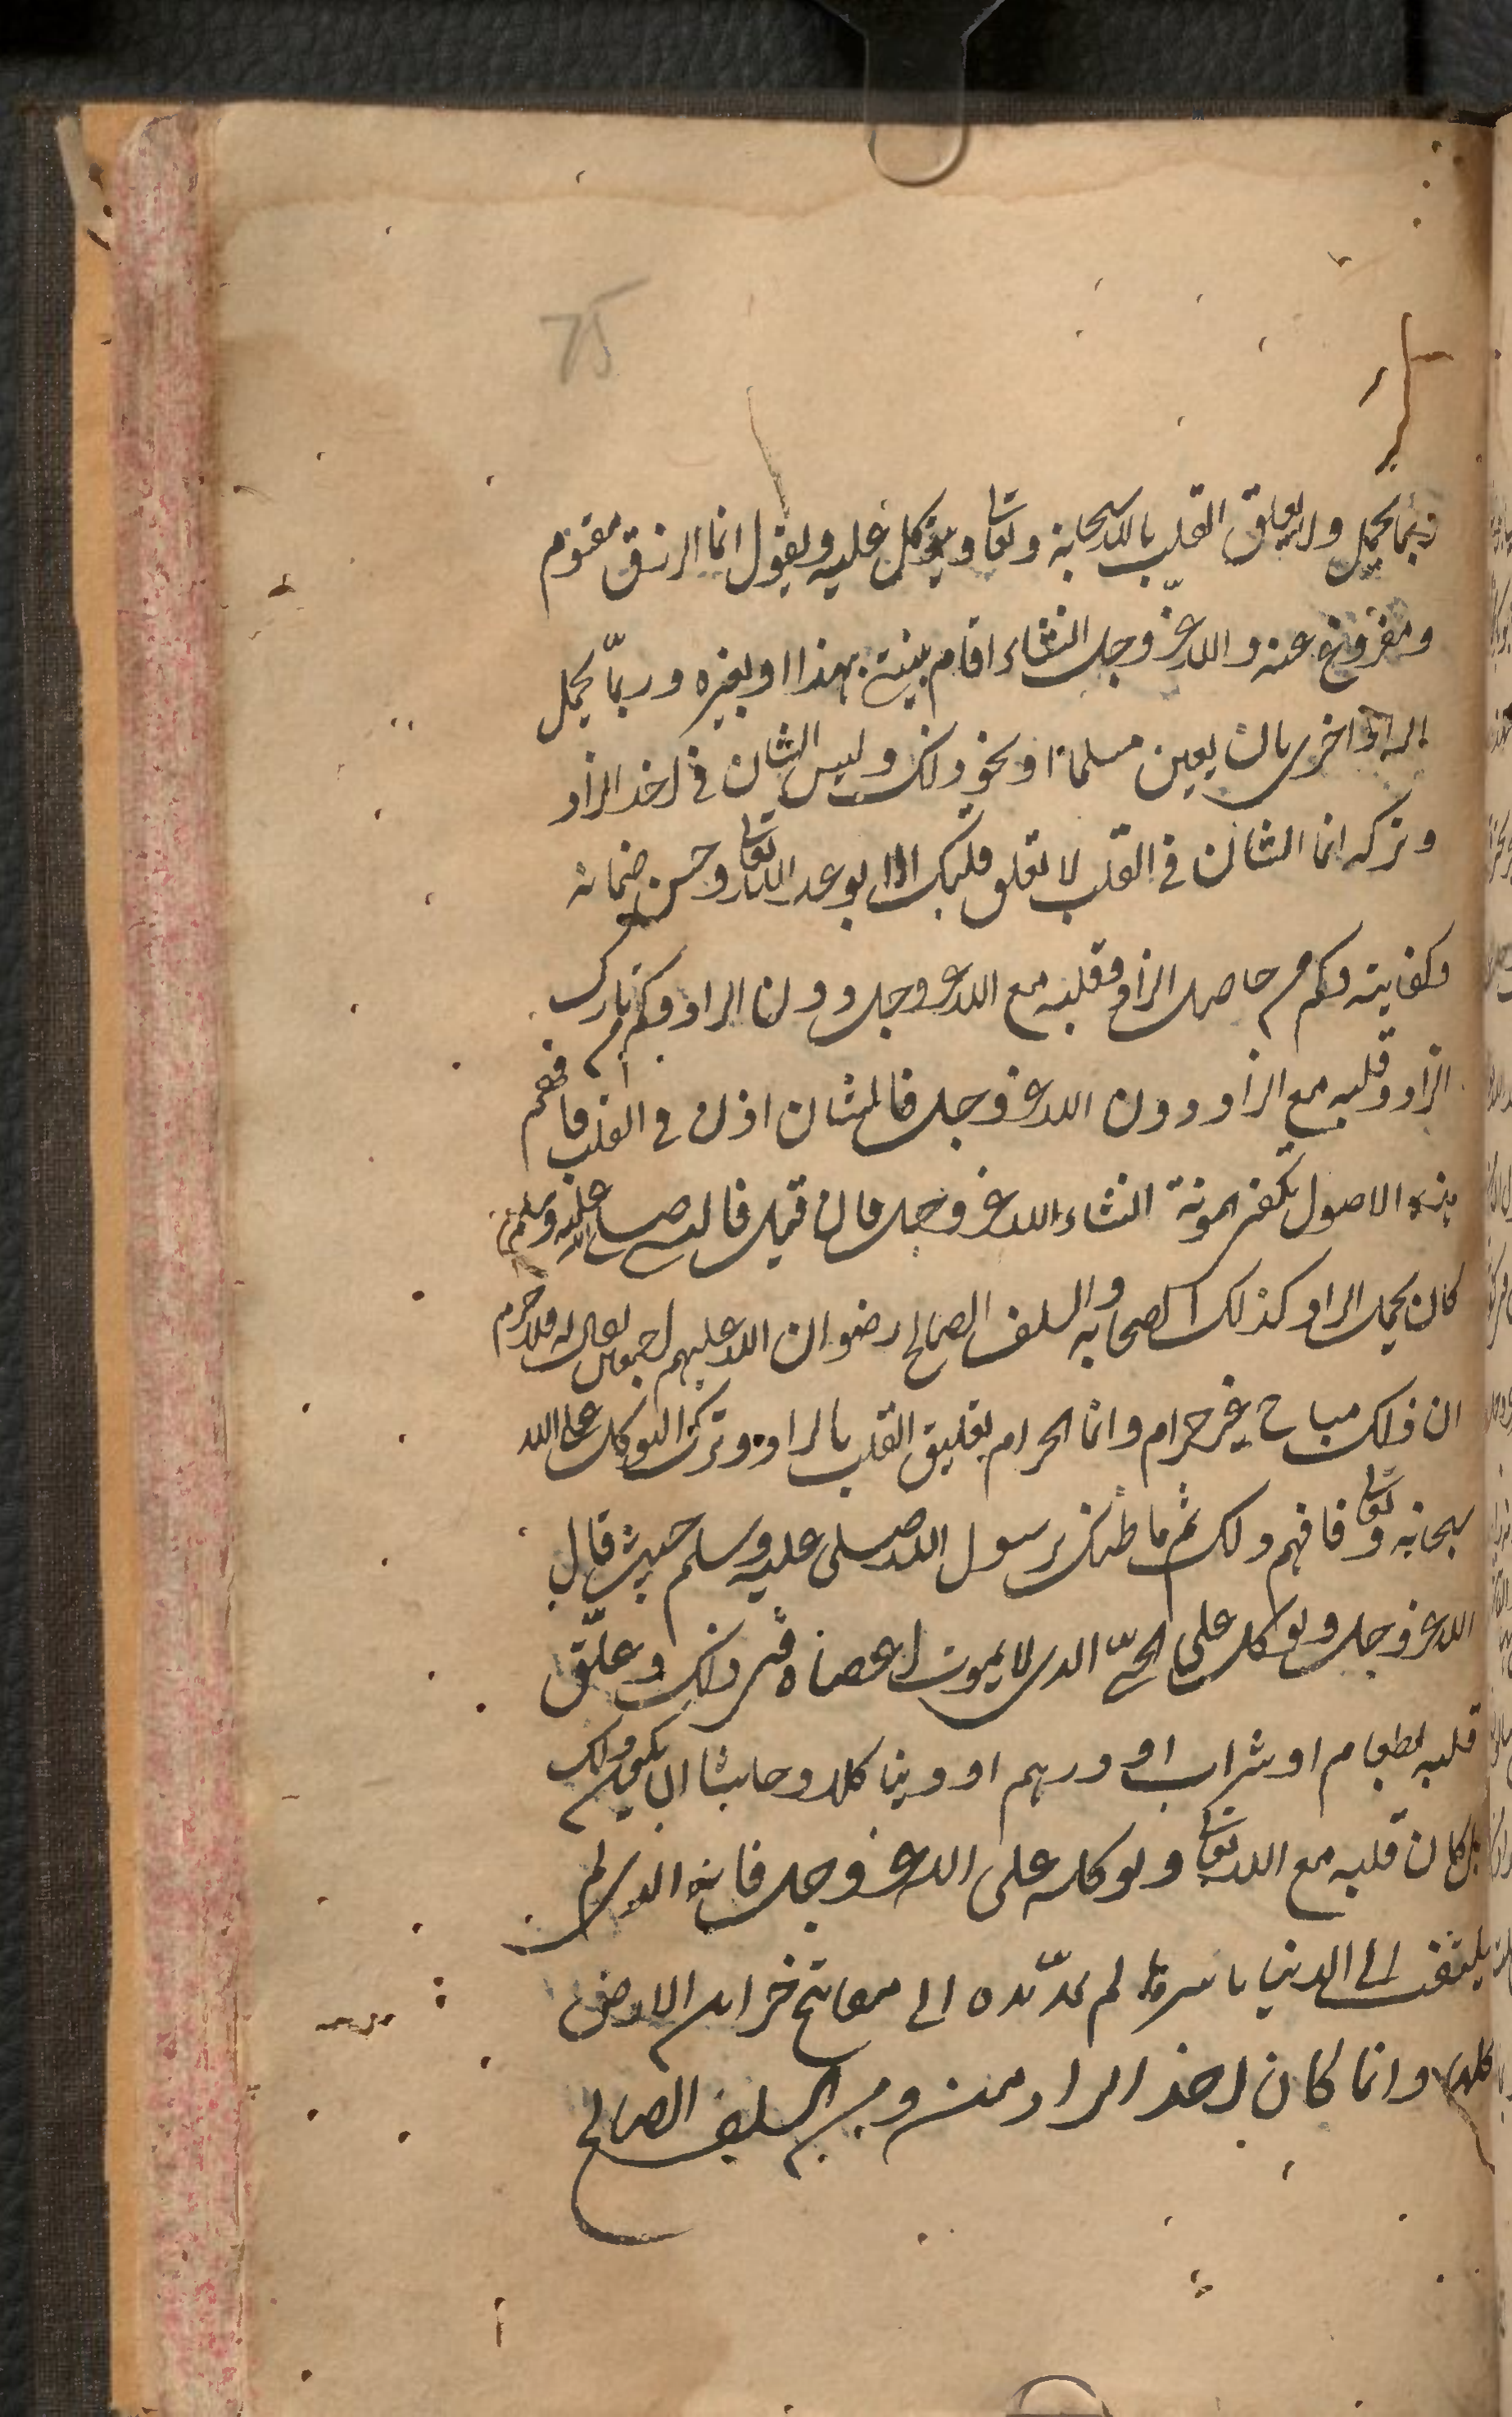 75
ربما يحمل ولا يعلق القلب بالله سبحانه وتعالى ويتوكل عليه ويقول انما الرزق مقسوم
ومفروغ عنه والله عزّ وجل انشاء اقام بينة بهذا او بغيره وربّما يحمل
الزاد اخرى بان يعين مسلما او نحو ذلك وليس الشان في اخذ الزاد
وتركه انما الشان في القلب لا تعلق قلبك الا بوعد الله تعالى وحسن ضمانه
وكفايته وكم من حامل الزاد وقلبه مع الله عز وجل دون الزاد وكم من تارك
الزاد وقلبه مع الزاد دون الله عز وجل فالشان اذن في القلب فافهم
هذه الاصول تكفى المونة انشاء الله عز وجل فان قيل فالنبى صلى الله عليه وسلم
كان يحمل الزاد وكذلك الصحابه والسلف الصالح رضوان الله عليهم اجمعين يقال له فلا جرم
ان ذلك مباح غير حرام وانما الحرام تعليق القلب بالزاد وترك التوكل على الله
سبحانه وتعالى فافهم ذلك ثم ما ظنك برسول الله صلى عليه وسلم حيث قال
الله عز وجل وتوكل على الحىّ الذى لا يموت اعصاه فى ذلك وعلّق
قلبه بطعام او شراب او درهم او دينا كلا وحاشا ان يكون ذلك
بل كان قلبه مع الله تعالى وتوكله على الله عز وجل فانه الذى لم
يلتفت الى الدنيا باسرها لم يمدّ يده الى مفاتيح خزاين الارض
كلها وانما كان اخذ الزاد منه ومن السلف الصالح